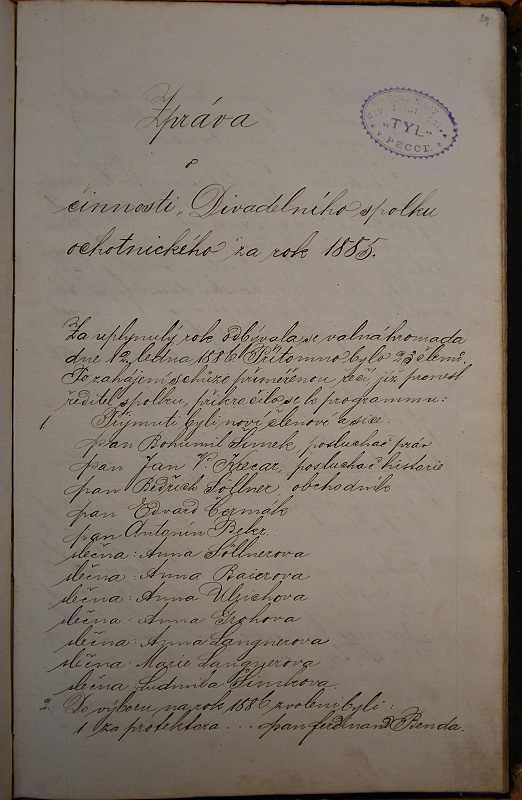 Zpráva
o
činnosti „Divadelního spolku
ochotnického" za rok 1885.
„TYL“
PECCT.
Za uplynulý rok odbývala se valná hromada
dne 12. ledna 1886. Přítomno bylo 23 členů.
Po zahájení schůze přiměřenou řečí, již pronesl
ředitel spolku, přikročilo se k programmu:
1. Přijmuti byli noví členové a sice:
pan Bohumil Šimek, posluchač práv
pan Jan V. Krecar, posluchač historie
pan Bedřich Söllner, obchodník
pan Edvard Čermák
pan Antonín
slečna: Anna Söllnerova
slečna: Anna Baierova
slečna: Anna
slečna: Anna Grohova
slečna: Anna Langnerova
slečna: Marie Langnerova
slečna: Ludmila Šimkova.
2. Do výboru na rok 1886 zvoleni byli:
1 za protektora ... pan Ferdinand Benda.